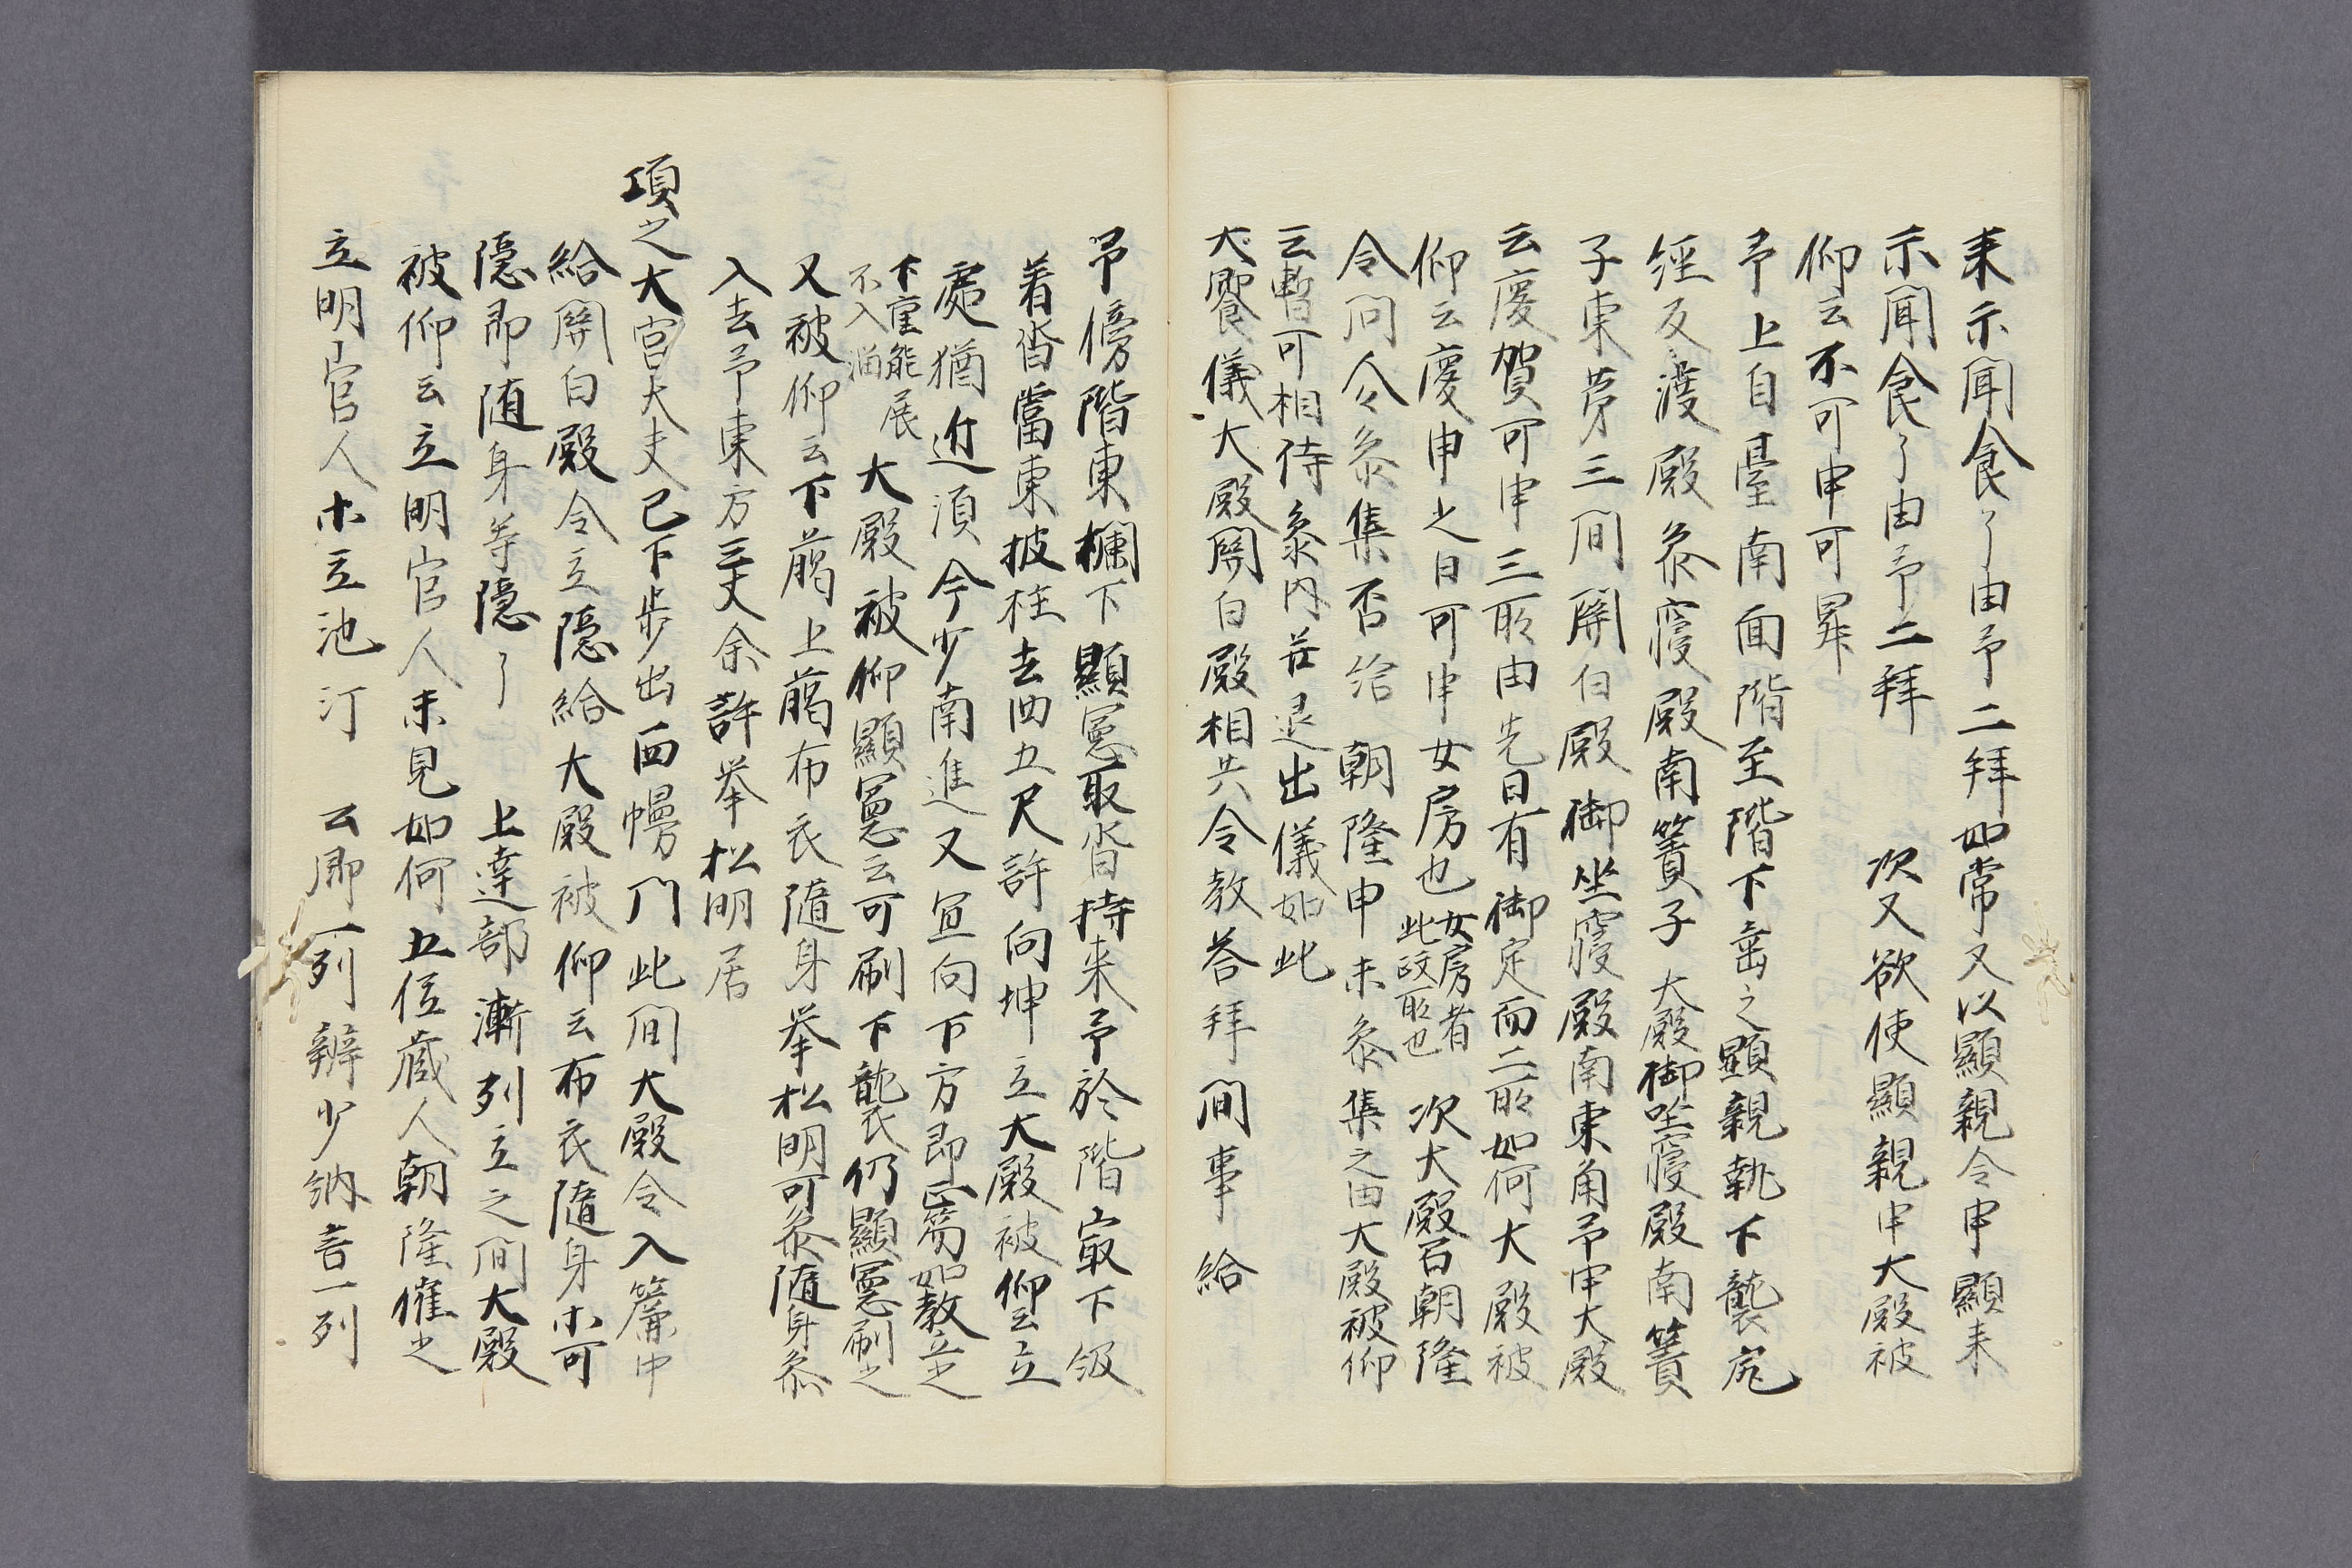 来示聞食了由予二拝如常又以顕親令申顕来
示聞食了由予二拝　次又欲使顕親申大殿被
仰云不可申可昇
予上自臺南面階至階下之顕親執下襲尻
經反渡殿参寝殿南簀子大殿御坐寝殿南簀
子東第三間関白殿御坐寝殿南東角予申大殿
云慶賀可申三所由先日有御定而二所如何大殿被
仰云慶申之日可申女房也女房者此政所也次大殿召朝隆
令問人々参集否給　朝隆申未参集之由大殿被仰
云暫可相待参内者退出儀如此
大饗儀大殿関白殿相共令教答拝間事給
予傍階東欄下顕憲取沓持来予於階最下級
着沓當東披柱去西五尺許向坤立大殿被仰云立
處猶近須今少南進又宜向下方即正笏如教立之
下重能展不入溜大殿被仰顕憲云可刷下襲仍顕憲刷之
又被仰云下﨟上﨟布衣随身挙松明可参随身参
入去予東方三丈余許挙松明居
項之大宮大夫已下歩出西幔門此間大殿令入簾中
給関白殿令立隠給大殿被仰云布衣随身ホ可
隠即随身等隠了　上達部漸列立之間大殿
被仰云立明官人未見如何五位蔵人朝隆催之
立明官人ホ立池汀　云卿一列辨少納言一列